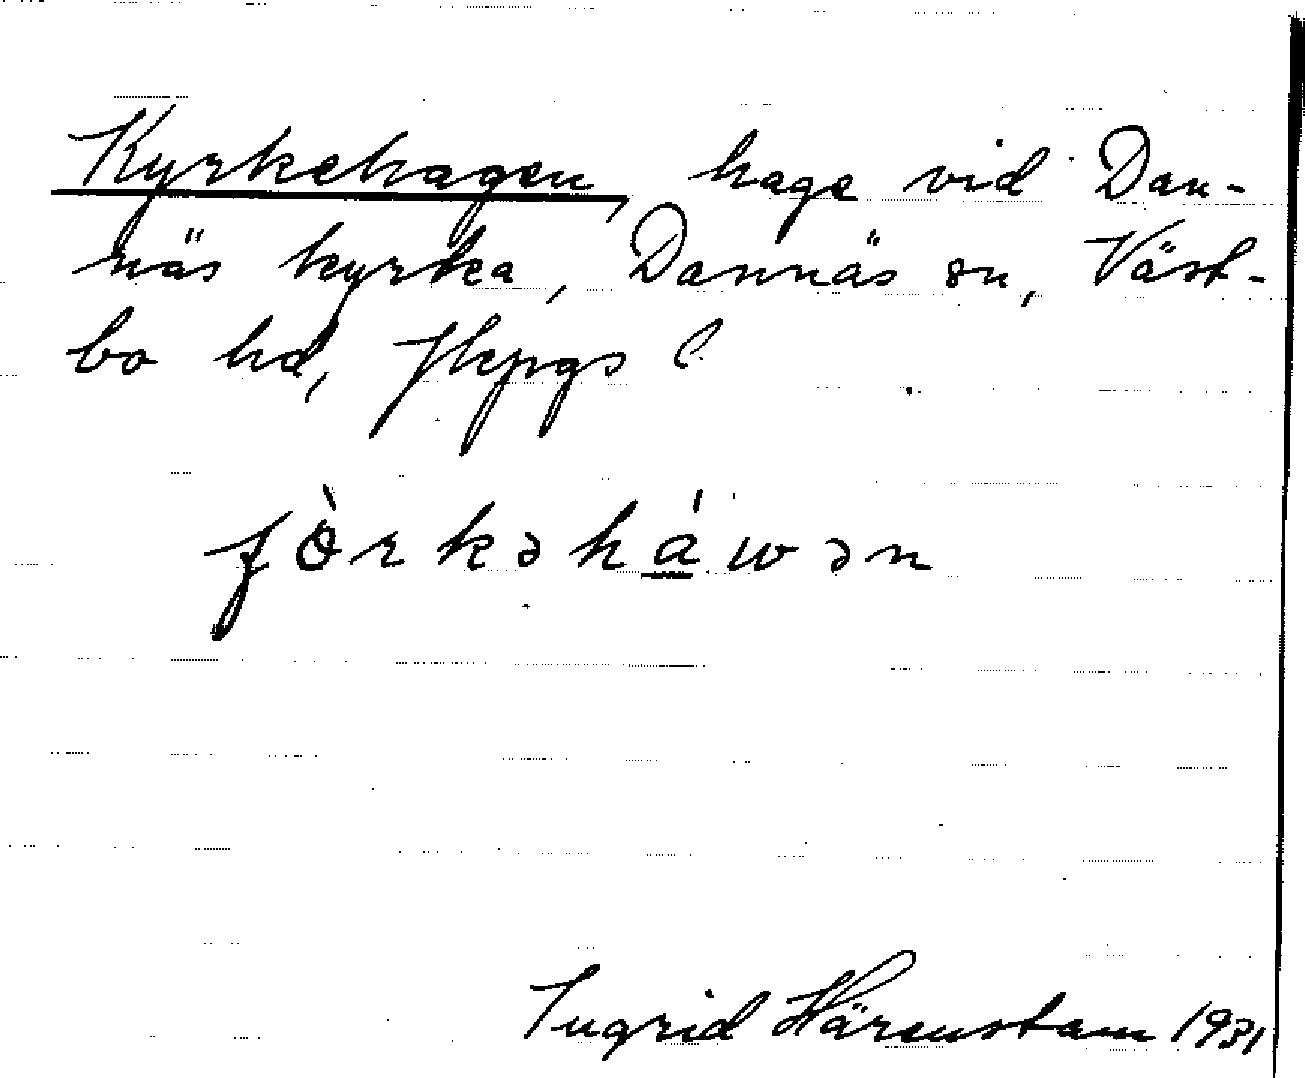 Kyrkehagen, hage vid Dan-
näs kyrka, Dannäs sn, Väst-
bo hd, Jkpgs l
ʃɵ̀rkəháwən
Ingrid Härenstam 1931